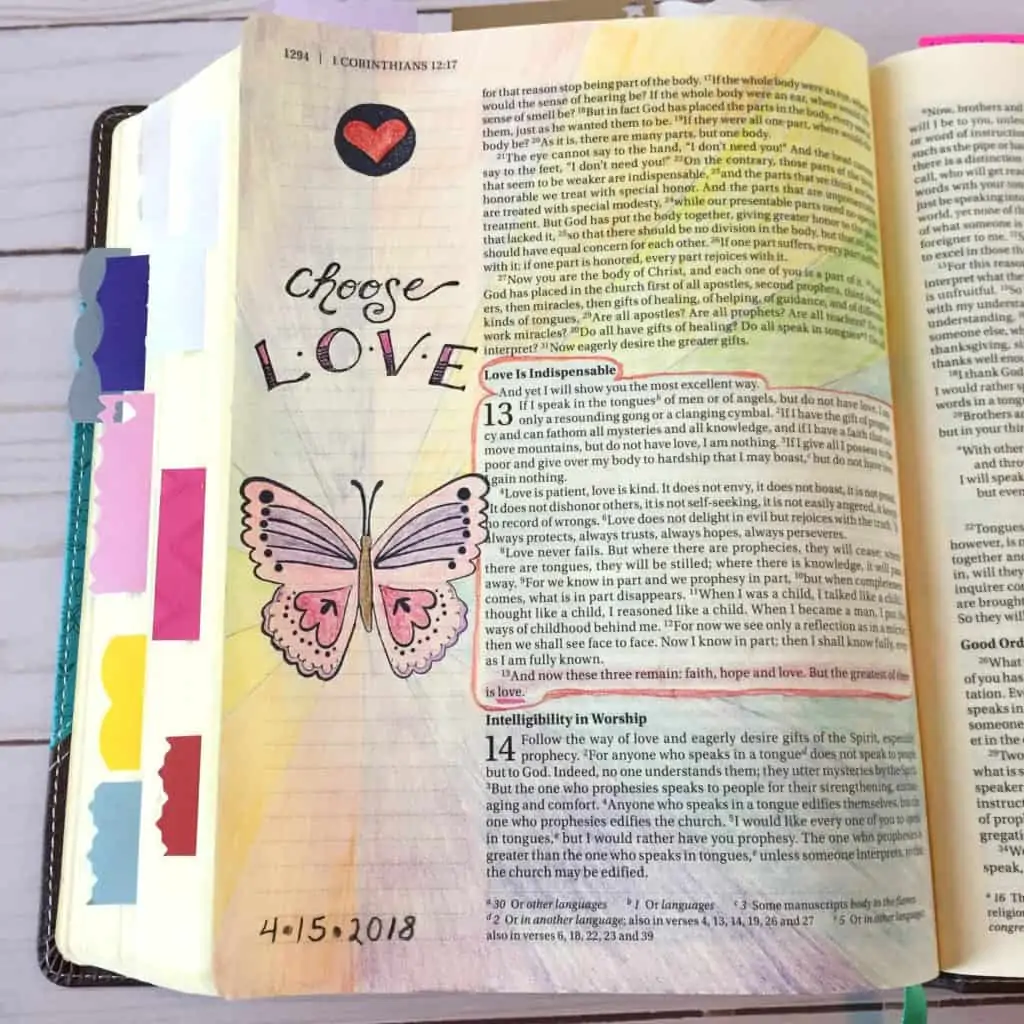 1294 | 1 CORINTHIANS 12:17
choose
L·O·V·E
4·15·2018
for that reason stop being part of the body. 17If the whole body were an eye, where
would the sense of hearing be? If the whole body were an ear, where would the
sense of smell be? 18But in fact God has placed the parts in the body, every one of
them, just as he wanted them to be. 19If they were all one part, where would the
body be? 20As it is, there are many parts, but one body.
21The eye cannot say to the hand, "I don't need you!" And the head cannot
say to the feet, "I don't need you!" 22On the contrary, those parts of the body
that seem to be weaker are indispensable, 23and the parts that we think are less
honorable we treat with special honor. And the parts that are unpresentable
are treated with special modesty, 24while our presentable parts need no special
treatment. But God has put the body together, giving greater honor to the parts
that lacked it, 25so that there should be no division in the body, but that its parts
should have equal concern for each other. 26If one part suffers, every part suffers
with it; if one part is honored, every part rejoices with it.
27Now you are the body of Christ, and each one of you is a part of it. 28And
God has placed in the church first of all apostles, second prophets, third teach-
ers, then miracles, then gifts of healing, of helping, of guidance, and of different
kinds of tongues. 29Are all apostles? Are all prophets? Are all teachers? Do all
work miracles? 30Do all have gifts of healing? Do all speak in tongues? Do all
interpret? 31Now eagerly desire the greater gifts.
Love Is Indispensable
And yet I will show you the most excellent way.
13 If I speak in the tongues b of men or of angels, but do not have love, I am
only a resounding gong or a clanging cymbal. 2If I have the gift of prophe-
cy and can fathom all mysteries and all knowledge, and if I have a faith that can
move mountains, but do not have love, I am nothing. 3If I give all I possess to the
poor and give over my body to hardship that I may boast, c but do not have love,
I gain nothing.
4Love is patient, love is kind. It does not envy, it does not boast, it is not proud.
5It does not dishonor others, it is not self-seeking, it is not easily angered, it keeps
no record of wrongs. 6Love does not delight in evil but rejoices with the truth. 7It
always protects, always trusts, always hopes, always perseveres.
8Love never fails. But where there are prophecies, they will cease; where
there are tongues, they will be stilled; where there is knowledge, it will pass
away. 9For we know in part and we prophesy in part, 10but when completeness
comes, what is in part disappears. 11When I was a child, I talked like a child, I
thought like a child, I reasoned like a child. When I became a man, I put the
ways of childhood behind me. 12For now we see only a reflection as in a mirror;
then we shall see face to face. Now I know in part; then I shall know fully, even
as I am fully known.
13And now these three remain: faith, hope and love. But the greatest of these
is love.
Intelligibility in Worship
14 Follow the way of love and eagerly desire gifts of the Spirit, especially
prophecy. 2For anyone who speaks in a tongue d does not speak to people
but to God. Indeed, no one understands them; they utter mysteries by the Spirit.
3But the one who prophesies speaks to people for their strengthening, encour-
aging and comfort. 4Anyone who speaks in a tongue edifies themselves, but the
one who prophesies edifies the church. 5I would like every one of you to speak
in tongues, e but I would rather have you prophesy. The one who prophesies is
greater than the one who speaks in tongues, e unless someone interprets, so that
the church may be edified.
a 30 Or other languages b 1 Or languages c 3 Some manuscripts body to the flames
d 2 Or in another language; also in verses 4, 13, 14, 19, 26 and 27 e 5 Or in other languages;
also in verses 6, 18, 22, 23 and 39
6Now, brothers and
will I be to you, unless
or word of instruction
such as the pipe or
there is a distinction
call, who will get
words with your
just be speaking
world, yet none of
of what someone is
foreigner to me.
to excel in those
13For this reason
interpret what the
is unfruitful. 15So
with my understand
understanding.
someone else, wh
thanksgiving,
thanks well enou
18I thank God
I would rather s
words in a tong
20Brothers an
but in your thin
"With other
and thro
I will speak
but even
22Tongues
however, is n
together and
in, will they
inquirer co
are brought
So they will
Good Ord
26What
of you has
tation. Ev
speaks in
someone
et in the
29Two
what is s
speaker
instruct
of prop
gregati
34Wo
speak,
a 16 Th
religion
congre